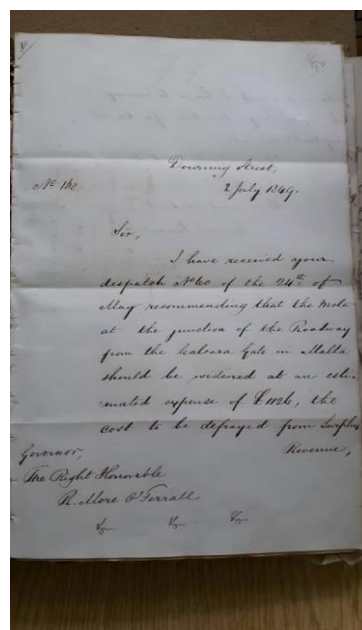 Downing Street,
2 July 1849.
No. 110
Sir,
I have received your
despatch No 60 of the 24th of
May recommending that the Mole
at the junction of the Roadway
from the Calcara Gate in Malta
should be widened at an esti-
mated expense of £1126, the
cost to be defrayed from Surplus
Revenue,
Governor,
The Right Honorable
R. More O'Ferrall